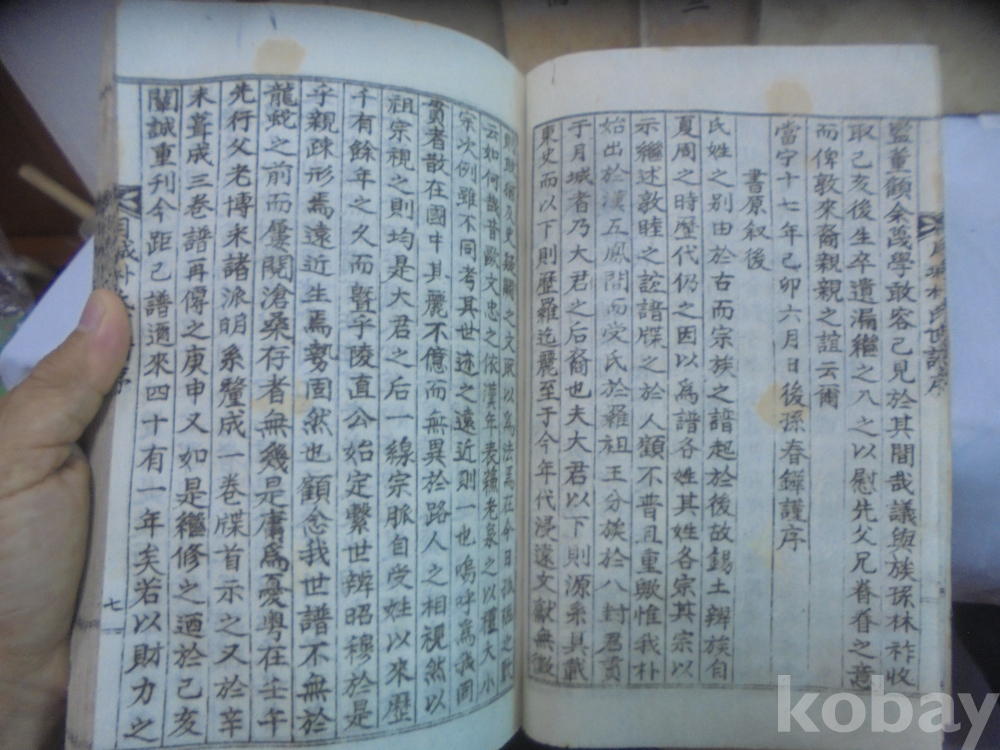 監董顧余蔑學敢容己見於其間哉議與族孫林祚收
取己亥後生卒遺漏繼之入之以慰先父兄眷眷之意
而俾敦來裔親親之誼云爾
當宁十七年己卯六月日後孫春鐸謹序
書原叙後
氏姓之別由於古而宗族之譜起於後故錫土辨族自
夏周之時歷代仍之因以爲譜各姓其姓各宗其宗以
示繼述敦睦之誼譜牒之於人顧不普且重歟惟我朴
始出於漢五鳳間而受氏於羅祖王分族於八封君貫
于月城者乃大君之后裔也夫大君以下則源系具載
東史而以下則歷羅迄麗至于今年代浸遠文獻無徵
云如何識昔歐文忠之依漢年表蘓老泉之以禮大小
宗次例雖不同考其世迹之遠近則一也嗚呼爲我同
貫者散在國中其麗不億而無異於路人之相視然以
祖宗視之則均是大君之后一線宗脈自受姓以來歷
千有餘年之久而曁乎陵直公始定繫世辨昭穆於是
乎親疎形焉遠近生焉勢固然也顧念我世譜不無於
龍蛇之前而屢閱滄桑存者無幾是庸爲憂粤在壬午
先行父老博采諸派明系釐成一卷牒首示之又於辛
未葺成三卷譜再傳之庚申又如是繼修之逎於己亥
闔誠重刊今距己譜逎來四十有一年矣若以財力之
月城朴氏世譜序
七
kobay